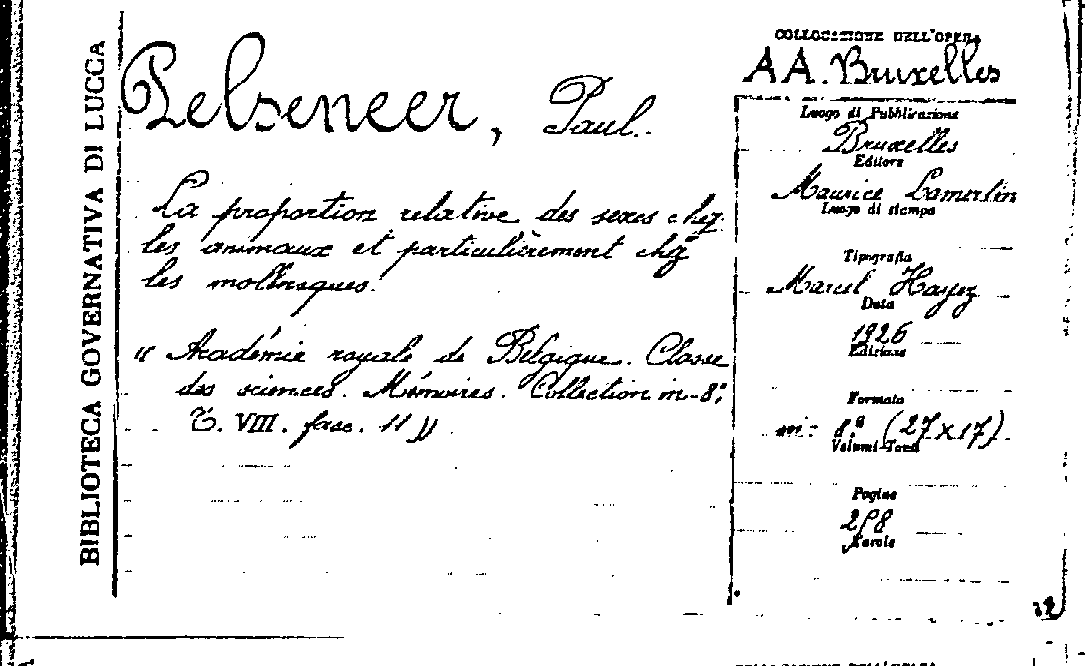 BIBLIOTECA GOVERNATIVA DI LUCCA
Pelseneer, Paul.
La proportion relative des sexes chez
les animaux et particulièrement chez
les mollusques.
" Académie royale de Belgique. Classe
des sciences. Mémoires. Collection in-8°
T. VIII. fasc. 11 "
COLLOCAZIONE DELL'OPERA
AA. Bruxelles
Luogo di Pubblicazione
Bruxelles
Editore
Maurice Lamertin
Luogo di stampa
Tipografia
Marcel Hayez
Data
1926
Edizione
Formato
in- 8° (27×17).
Volumi-Tomi
Pagine
258
Tavole